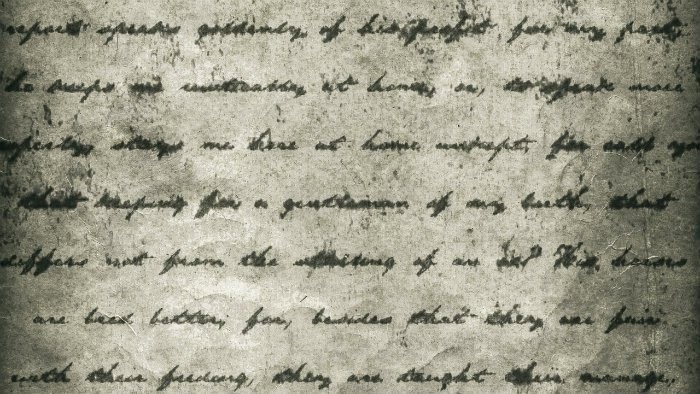 report speaks goldenly of his profit, for my part,
he keeps me rustically at home, or, to speak more
stays me here at home unkept, for call
that keeping for a gentleman of my birth, that
differs not from the stalling of an ox? His horses
are bred better, for, besides that they are fair
with their feeding, they are taught their manage,